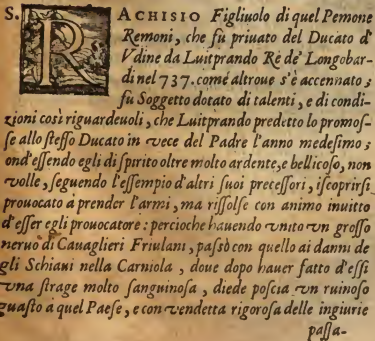 S. RACHISIO Figliuolo di quel Pemone
Remoni, che fù priuato del Ducato d'
Vdine da Luitprando Rè de' Longobar-
di nel 737. come altroue s'è accennato;
fu Soggetto dotato di talenti, e di condi-
zioni così riguardeuoli, che Luitprando predetto lo promoſ-
ſe allo ſteſſo Ducato in vece del Padre l'anno medeſimo;
ond'eſſendo egli di ſpirito oltre molto ardente, e bellicoſo, non
volle, ſeguendo l'eſſempio d'altri ſuoi preceſſori, iſcoprirſi
prouocato a prender l'armi, ma riſſolſe con animo inuitto
d'eſſer egli prouocatore: percioche hauendo vnito vn groſſo
neruo di Cauaglieri Friulani, paſsò con quello ai danni de
gli Schiaui nella Carniola, doue dopo hauer fatto d'eſſi
vna ſtrage molto ſanguinoſa, diede poſcia vn ruinoſo
guaſto a quel Paeſe, e con vendetta rigoroſa delle ingiurie
paſſa-